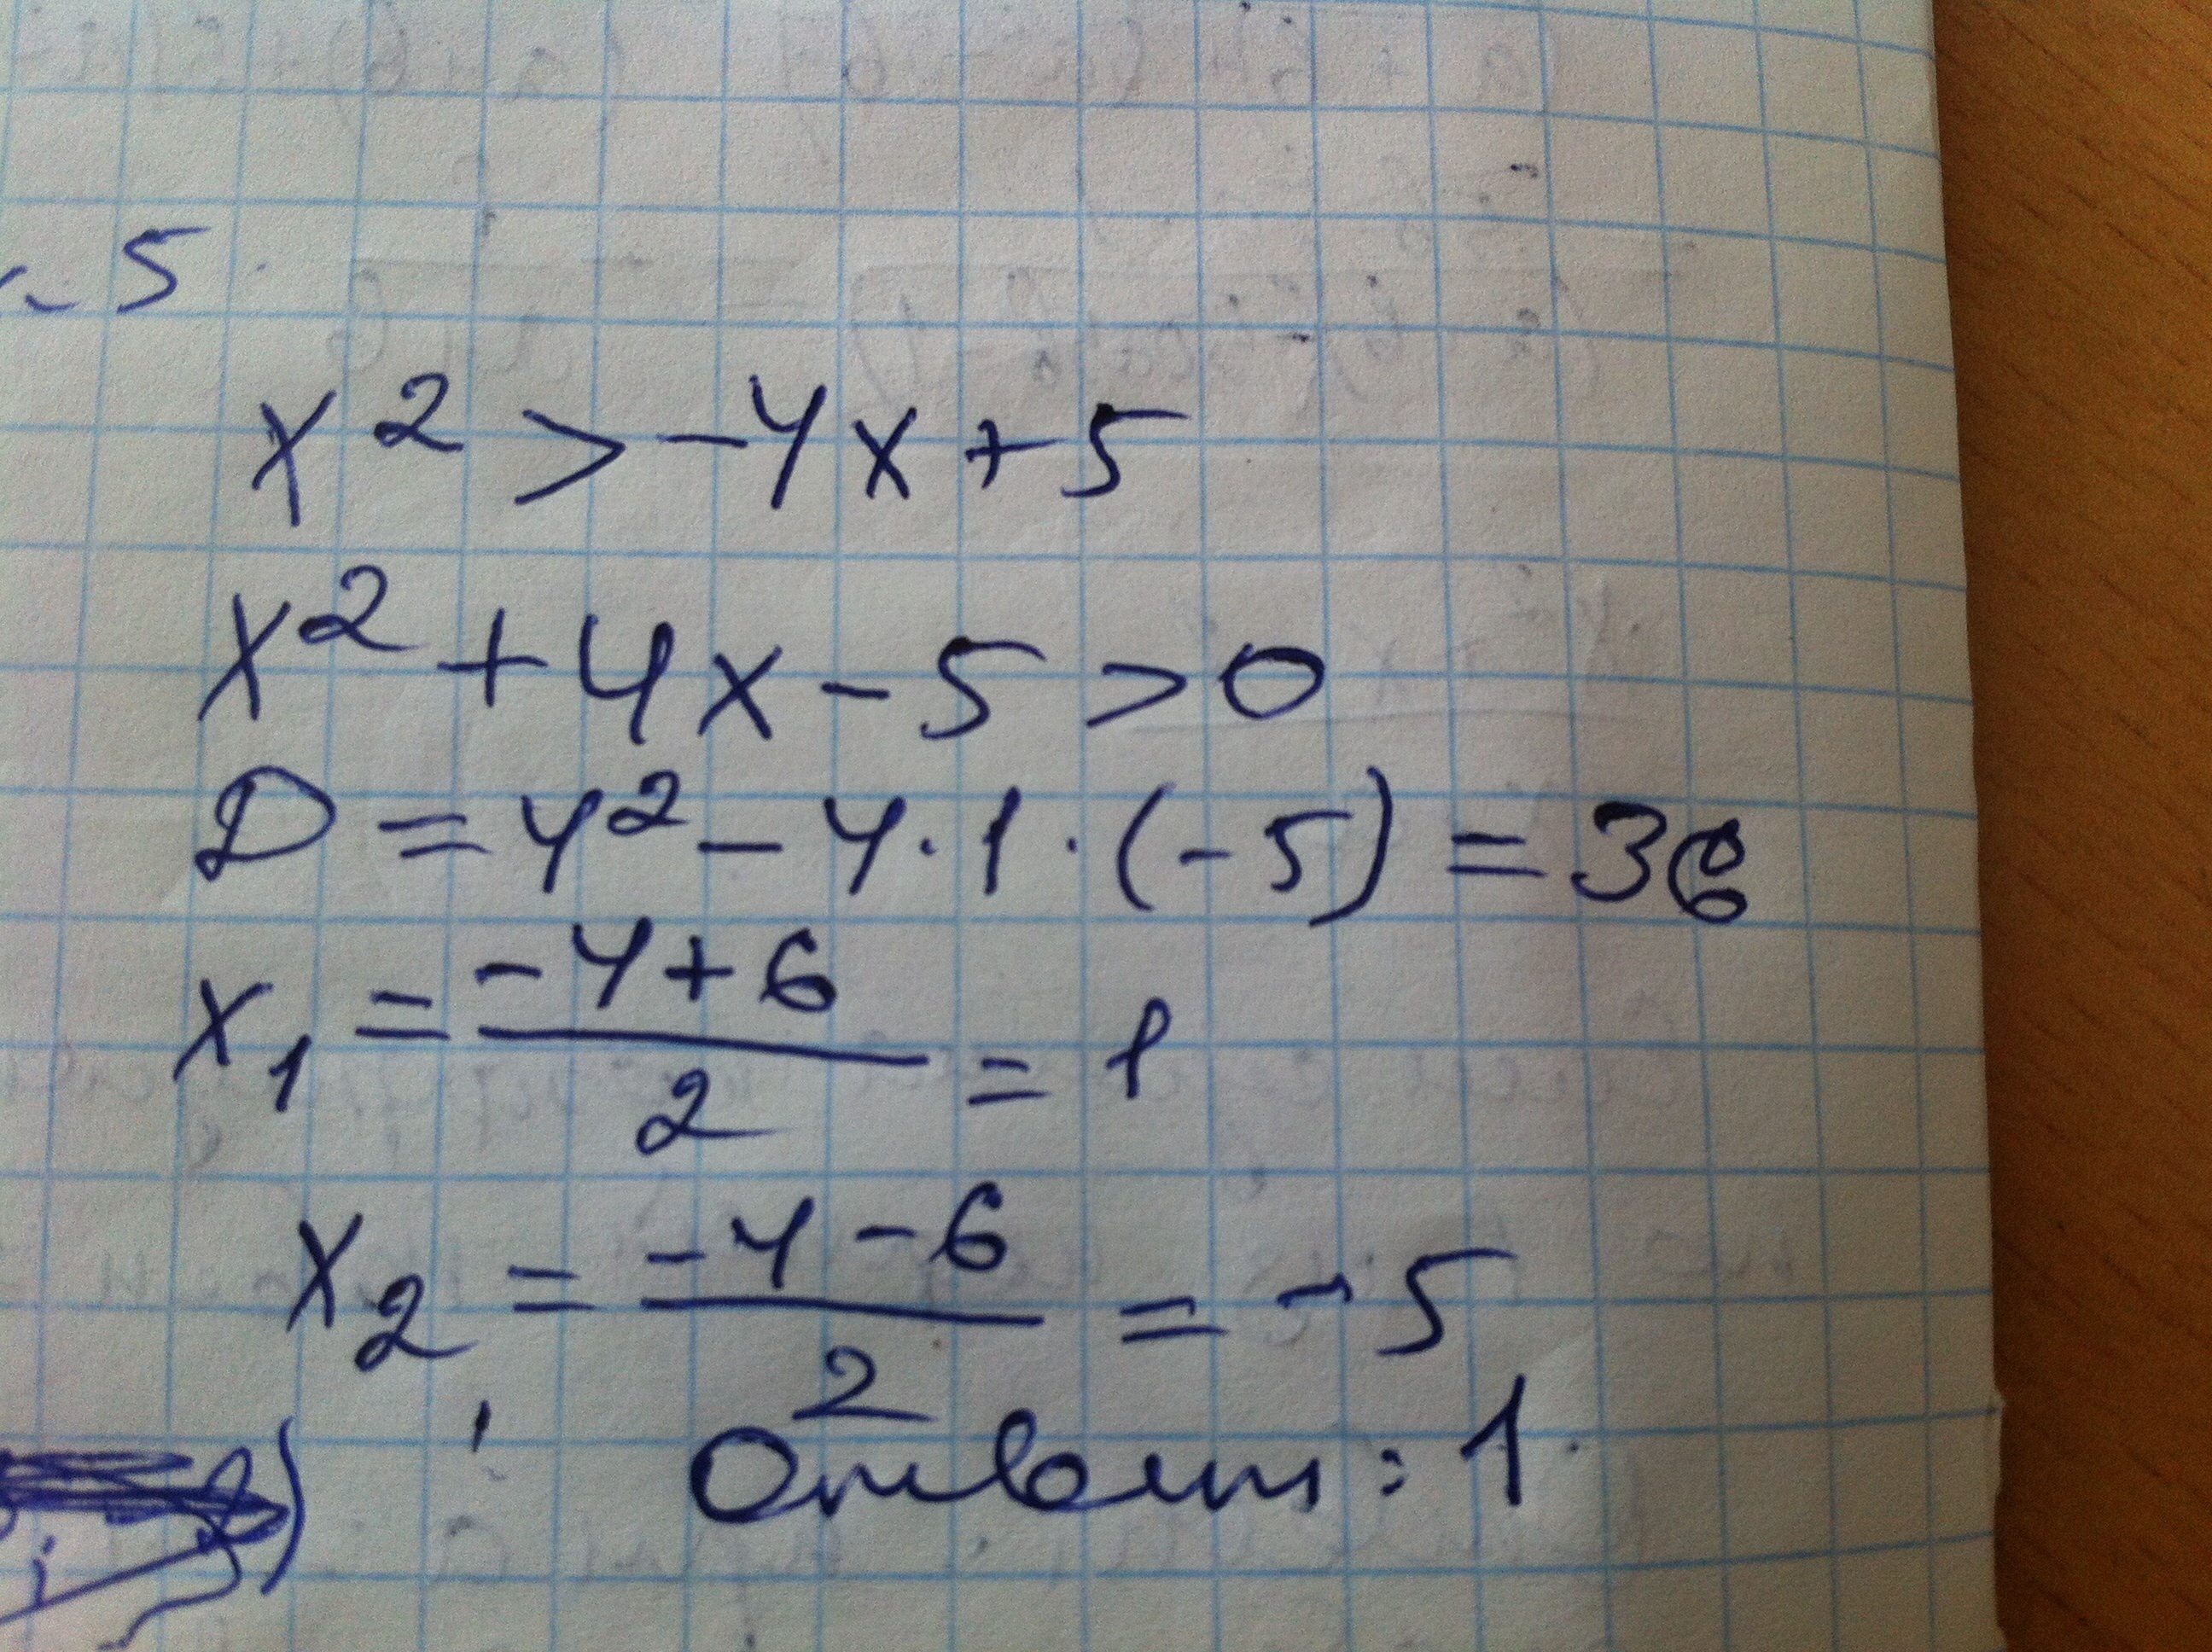 - 5
x² > -4x + 5
x² + 4x - 5 > 0
D = 4² - 4 · 1 · (-5) = 36
x₁ = (-4 + 6)/2 = 1
x₂ = (-4 - 6)/2 = -5
Ответ: 1